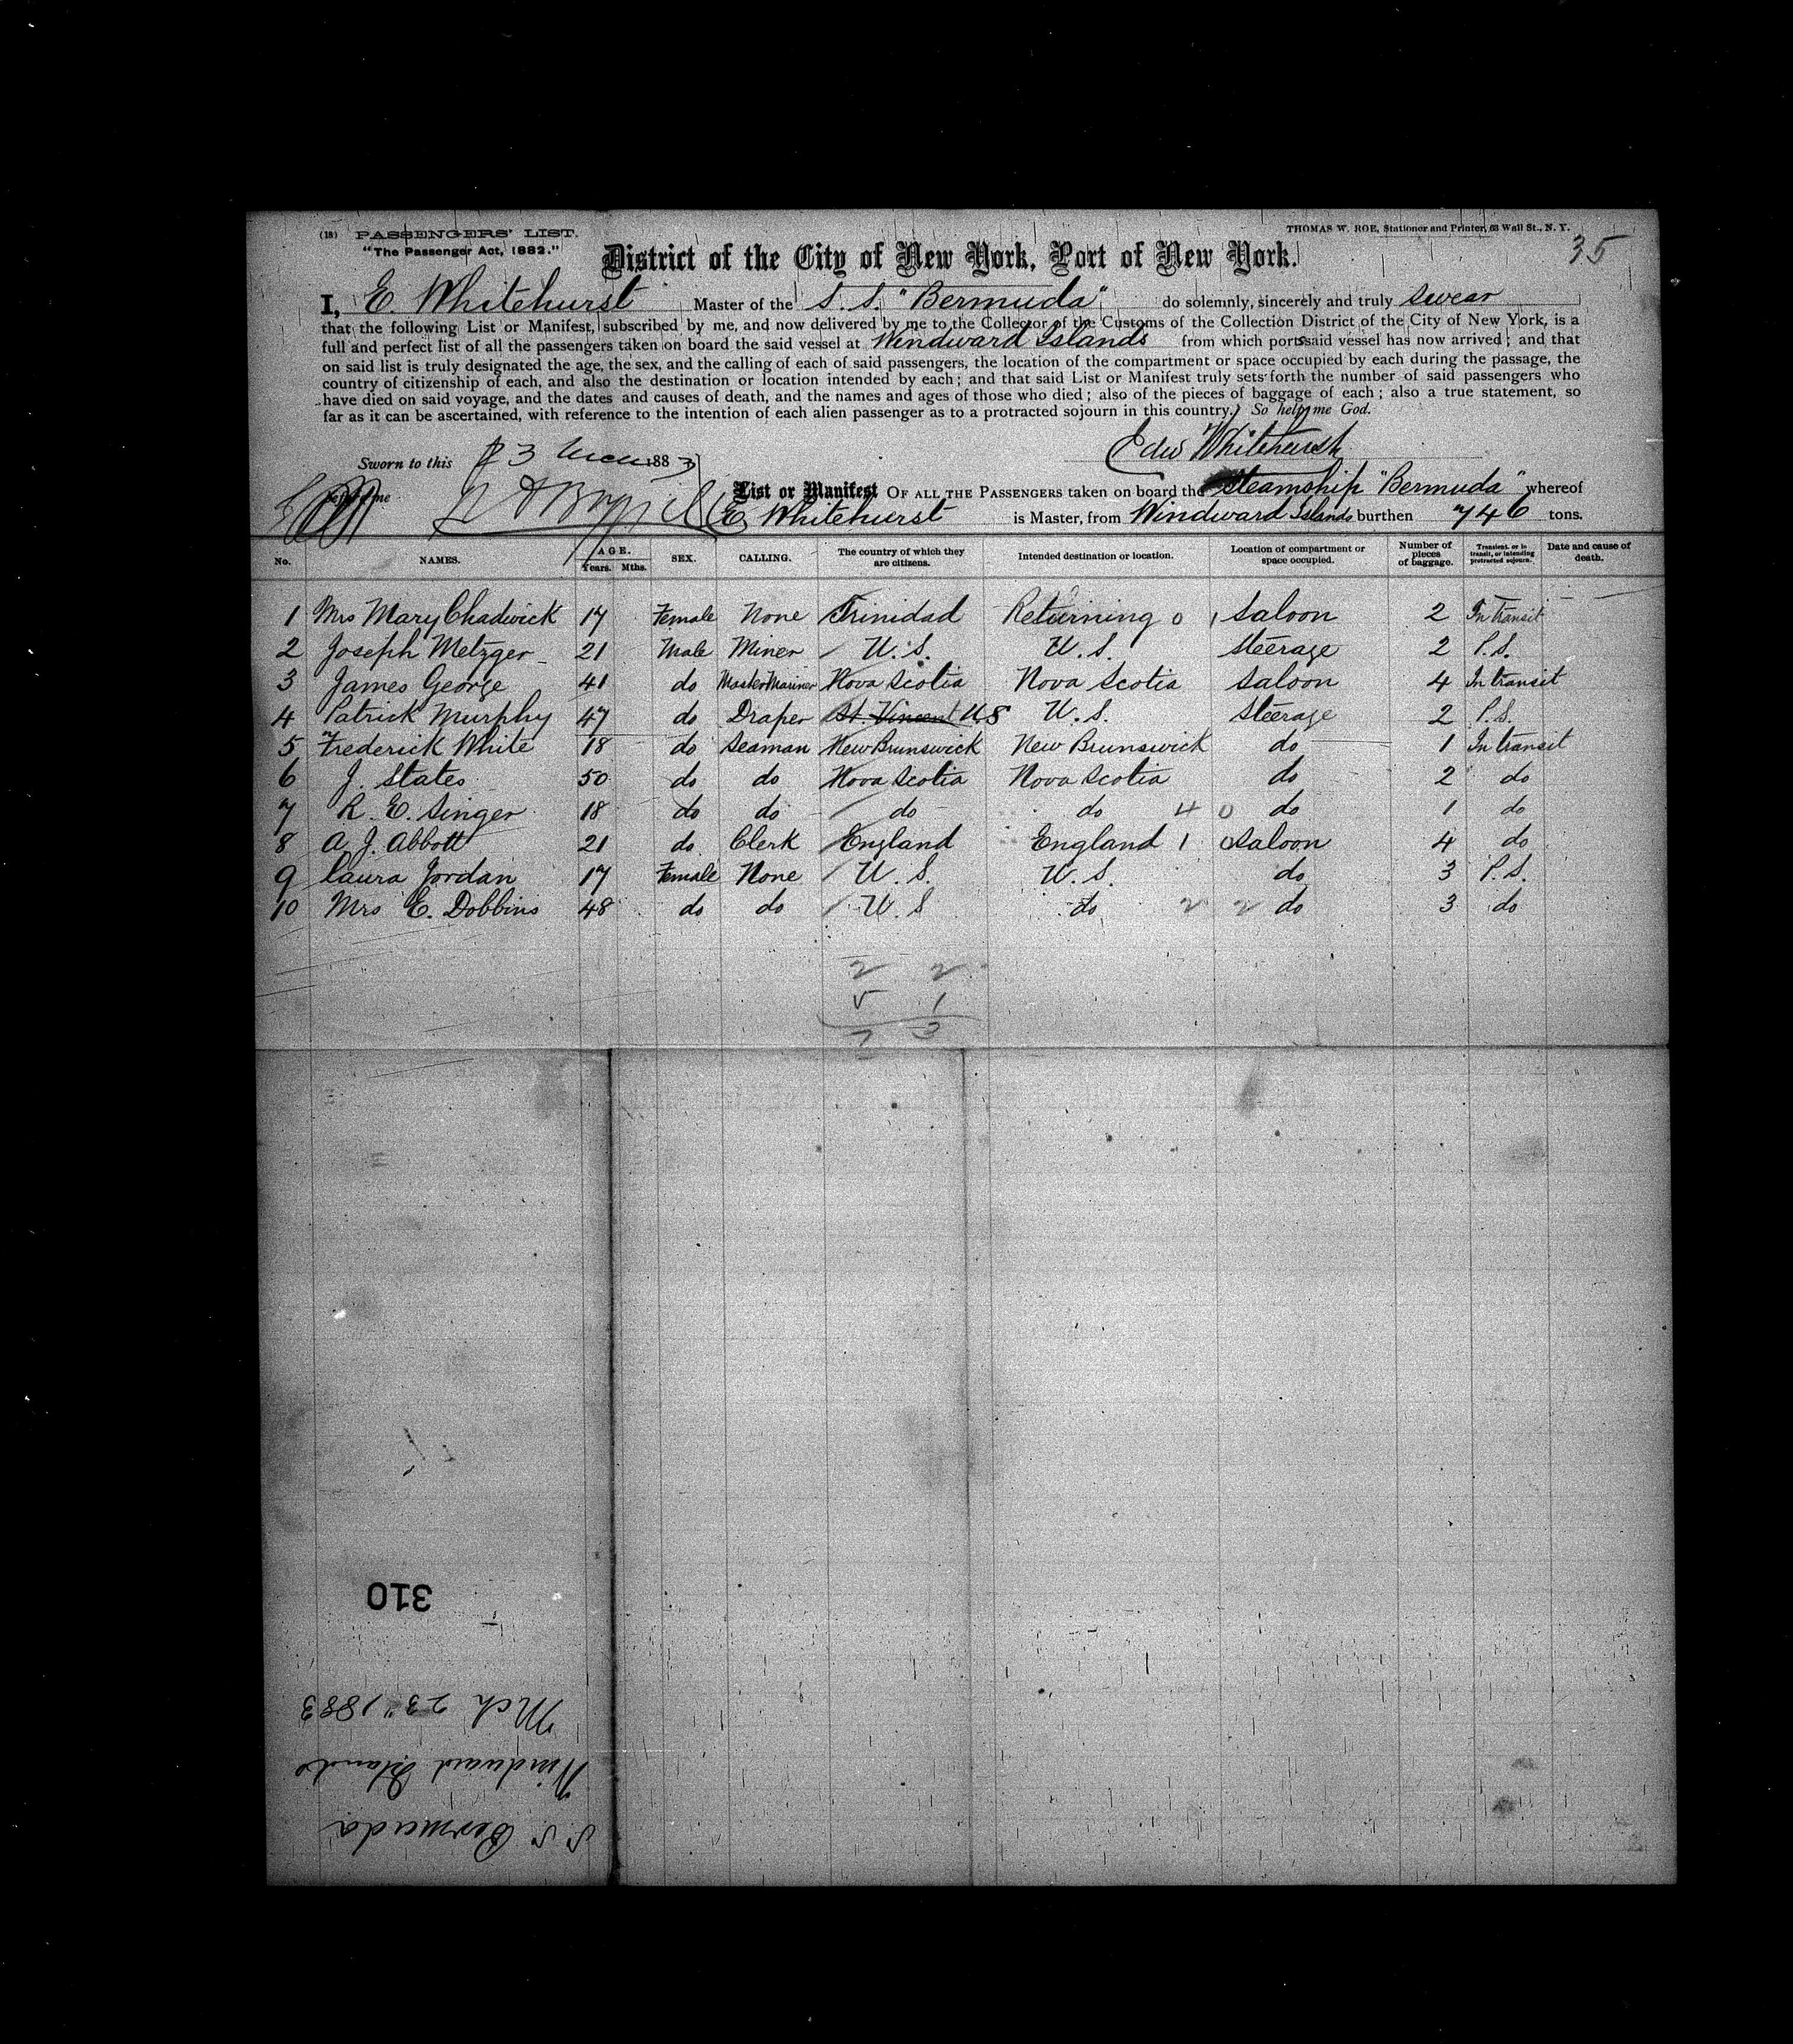 (18) PASSENGERS' LIST.
"The Passenger Act, 1882."
THOMAS W. ROE, Stationer and Printer, 63 Wall St., N. Y.
35
District of the City of New York, Port of New York.
I, E. Whitehurst Master of the S. S. "Bermuda" do solemnly, sincerely and truly swear
that the following List or Manifest, subscribed by me, and now delivered by me to the Collector of the Customs of the Collection District of the City of New York, is a
full and perfect list of all the passengers taken on board the said vessel at Windward Islands from which ports said vessel has now arrived; and that
on said list is truly designated the age, the sex, and the calling of each of said passengers, the location of the compartment or space occupied by each during the passage, the
country of citizenship of each, and also the destination or location intended by each; and that said List or Manifest truly sets forth the number of said passengers who
have died on said voyage, and the dates and causes of death, and the names and ages of those who died; also of the pieces of baggage of each; also a true statement, so
far as it can be ascertained, with reference to the intention of each alien passenger as to a protracted sojourn in this country. So help me God.
Edw Whitehurst
Sworn to this 23 1883
before me
List or Manifest OF ALL THE PASSENGERS taken on board the Steamship "Bermuda" whereof
E. Whitehurst is Master, from Windward Islands burthen 746 tons.
No. NAMES. AGE. Years. Mths. SEX. CALLING. The country of which they are citizens. Intended destination or location. Location of compartment or space occupied. Number of pieces of baggage. Transient, or in transit, or intending protracted sojourn. Date and cause of death.
1 Mrs Mary Chadwick 17 Female None Trinidad Returning 0 1 Saloon 2 In transit
2 Joseph Metzger 21 Male Miner U.S. U.S. Steerage 2 P.S.
3 James George 41 do Master Mariner Nova Scotia Nova Scotia Saloon 4 In transit
4 Patrick Murphy 47 do Draper St. Vincent U S U.S. Steerage 2 P.S.
5 Frederick White 18 do Seaman New Brunswick New Brunswick do 1 In transit
6 J. States 50 do do Nova Scotia Nova Scotia do 2 do
7 R. E. Singer 18 do do do do 4 0 do 1 do
8 A. J. Abbott 21 do Clerk England England 1 0 Saloon 4 do
9 Laura Jordan 17 Female None U.S. U.S. do 3 P.S.
10 Mrs E. Dobbins 48 do do U.S do 2 2 do 3 do
2 2
5 1
7 3
310
S. S. Bermuda
Windward Islands
Mch 23" 1883